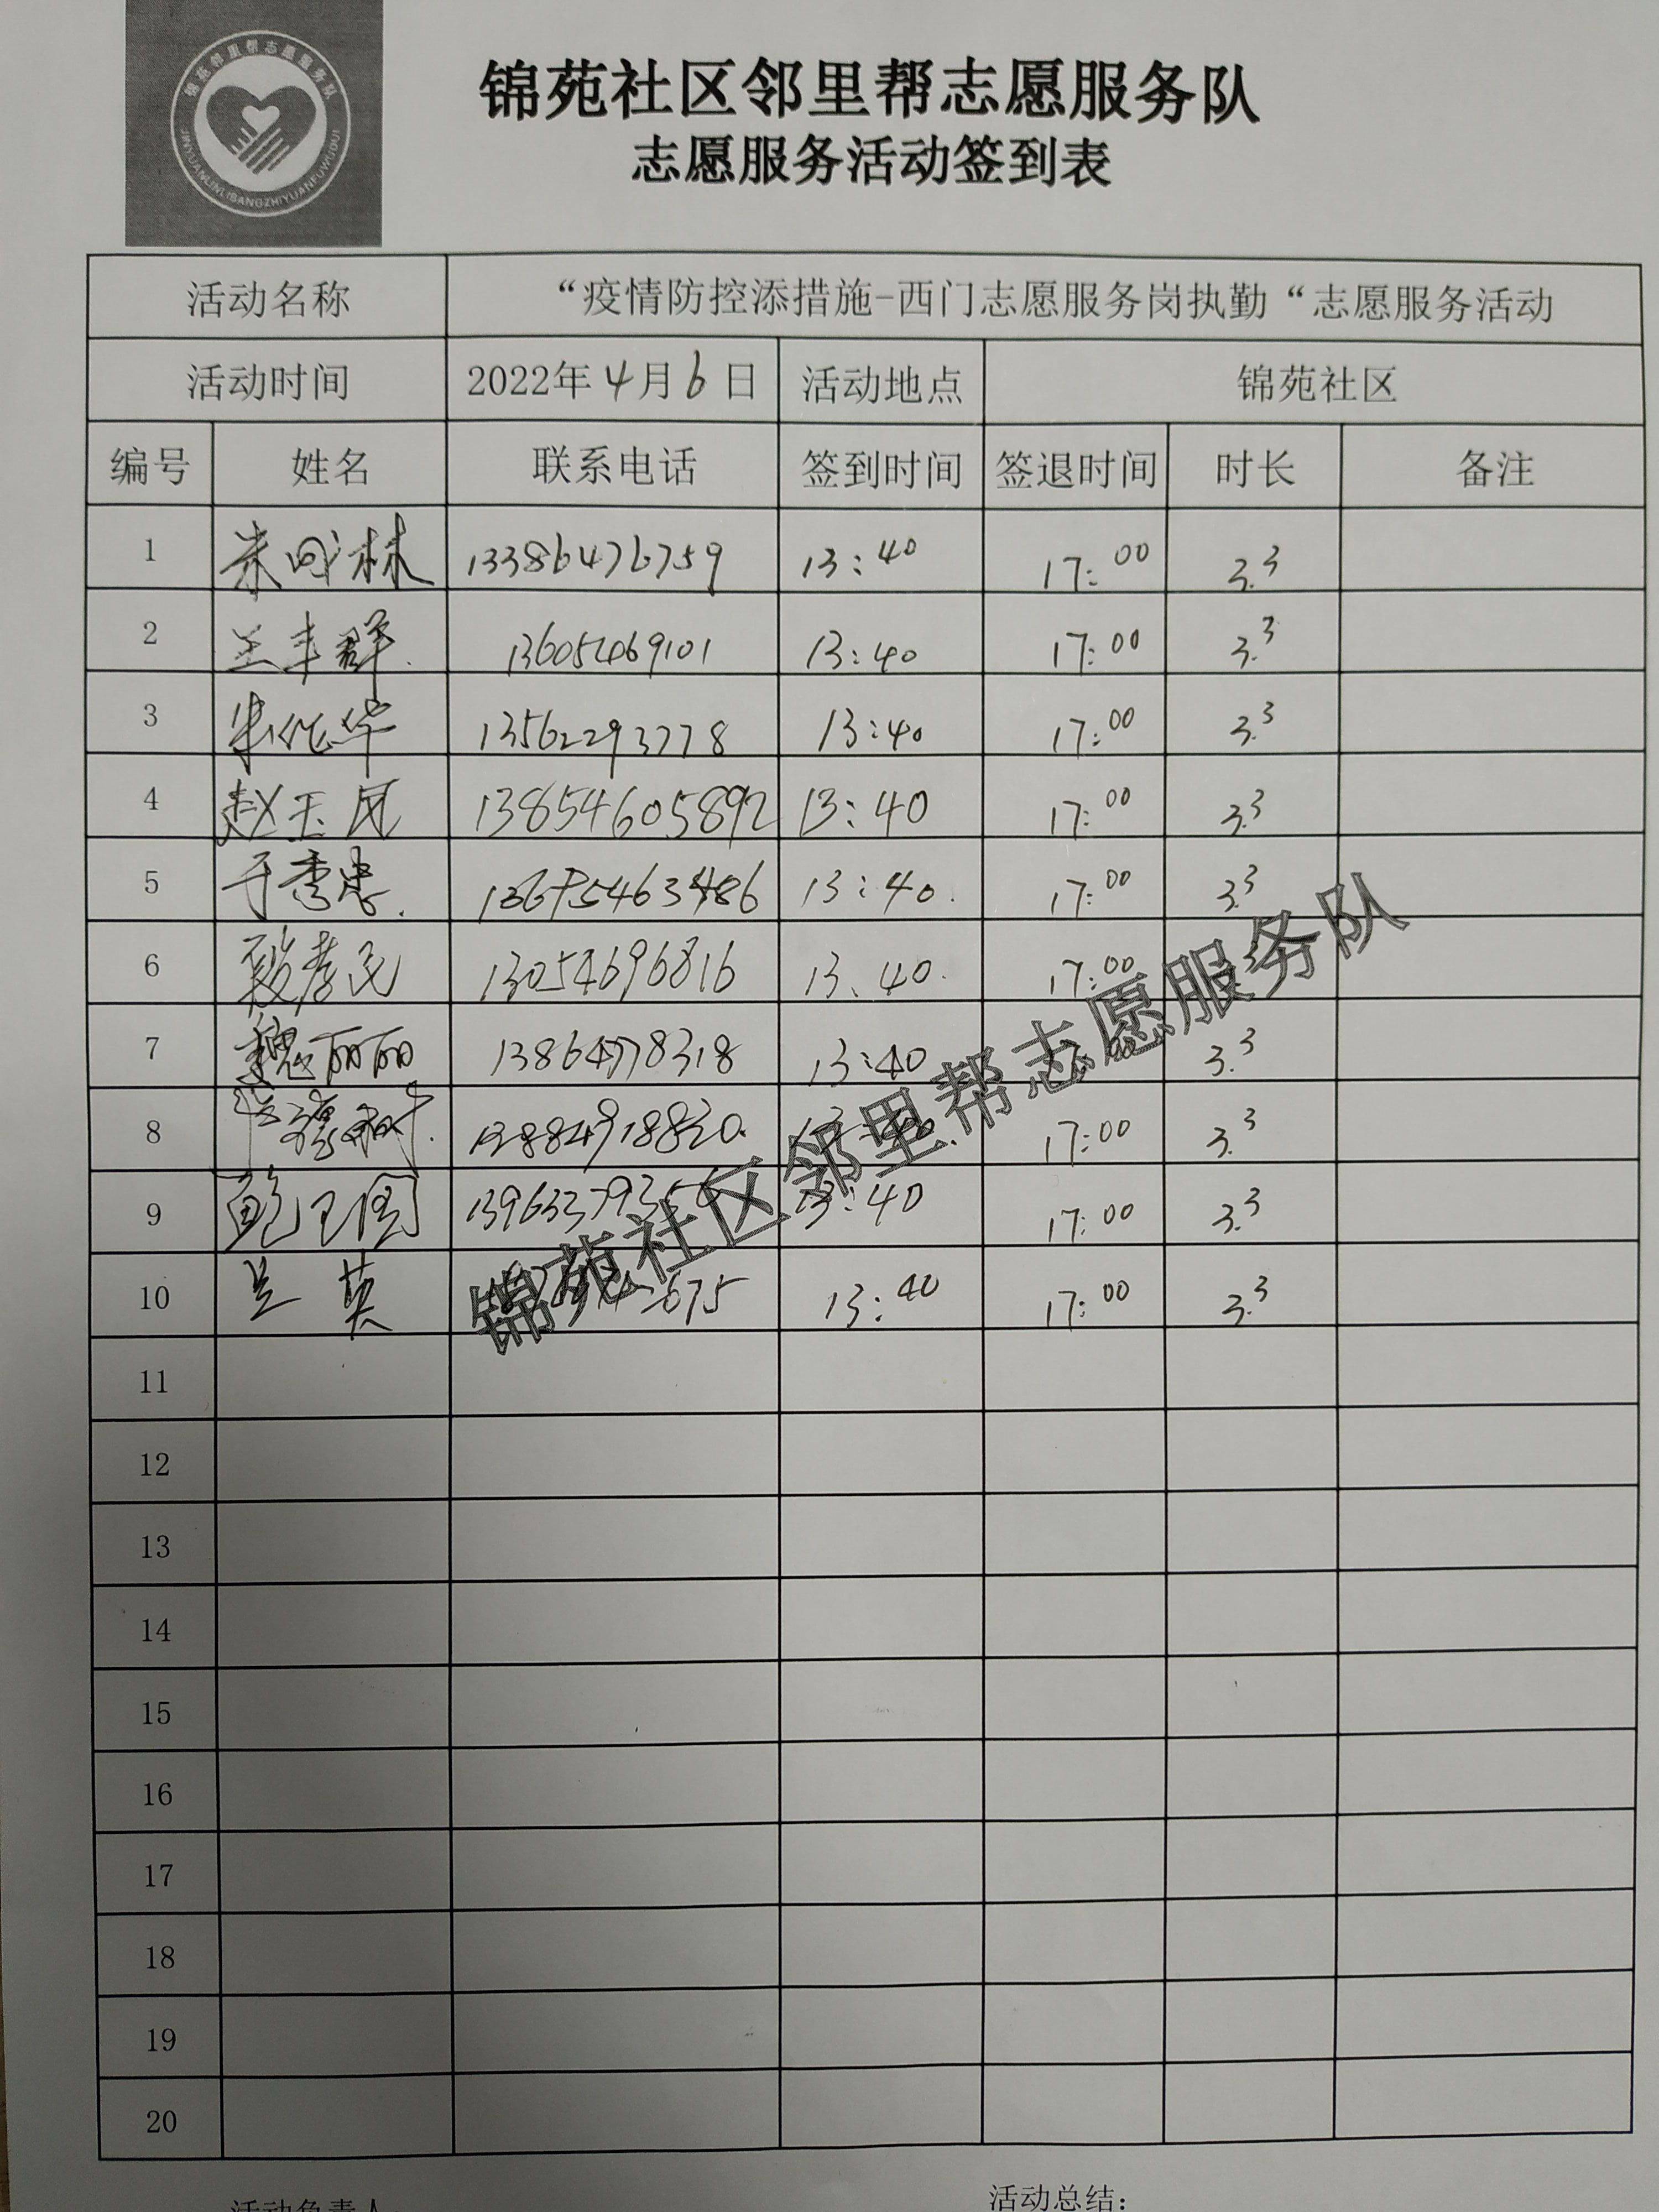 锦苑邻里帮志愿服务队
JINYUANLINLIBANGZHIYUANFUWUDUI
锦苑社区邻里帮志愿服务队
志愿服务活动签到表
活动名称 “疫情防控添措施-西门志愿服务岗执勤“志愿服务活动
活动时间 2022年4月6日 活动地点 锦苑社区
编号 姓名 联系电话 签到时间 签退时间 时长 备注
1 13386476759 13:40 17:00 3.3
2 兰丰群 13605469101 13:40 17:00 3.3
3 朱化华 13562293778 13:40 17:00 3.3
4 赵玉凤 13854605892 13:40 17:00 3.3
5 于秀忠 13:40 17:00 3.3
6 段孝民 13054696816 13:40 17:00
7 魏丽丽 13864778318 13:40 3.3
8 17:00 3.3
9 13:40 17:00 3.3
10 兰英 13:40 17:00 3.3
锦苑社区邻里帮志愿服务队
11
12
13
14
15
16
17
18
19
20
活动负责人 活动总结：